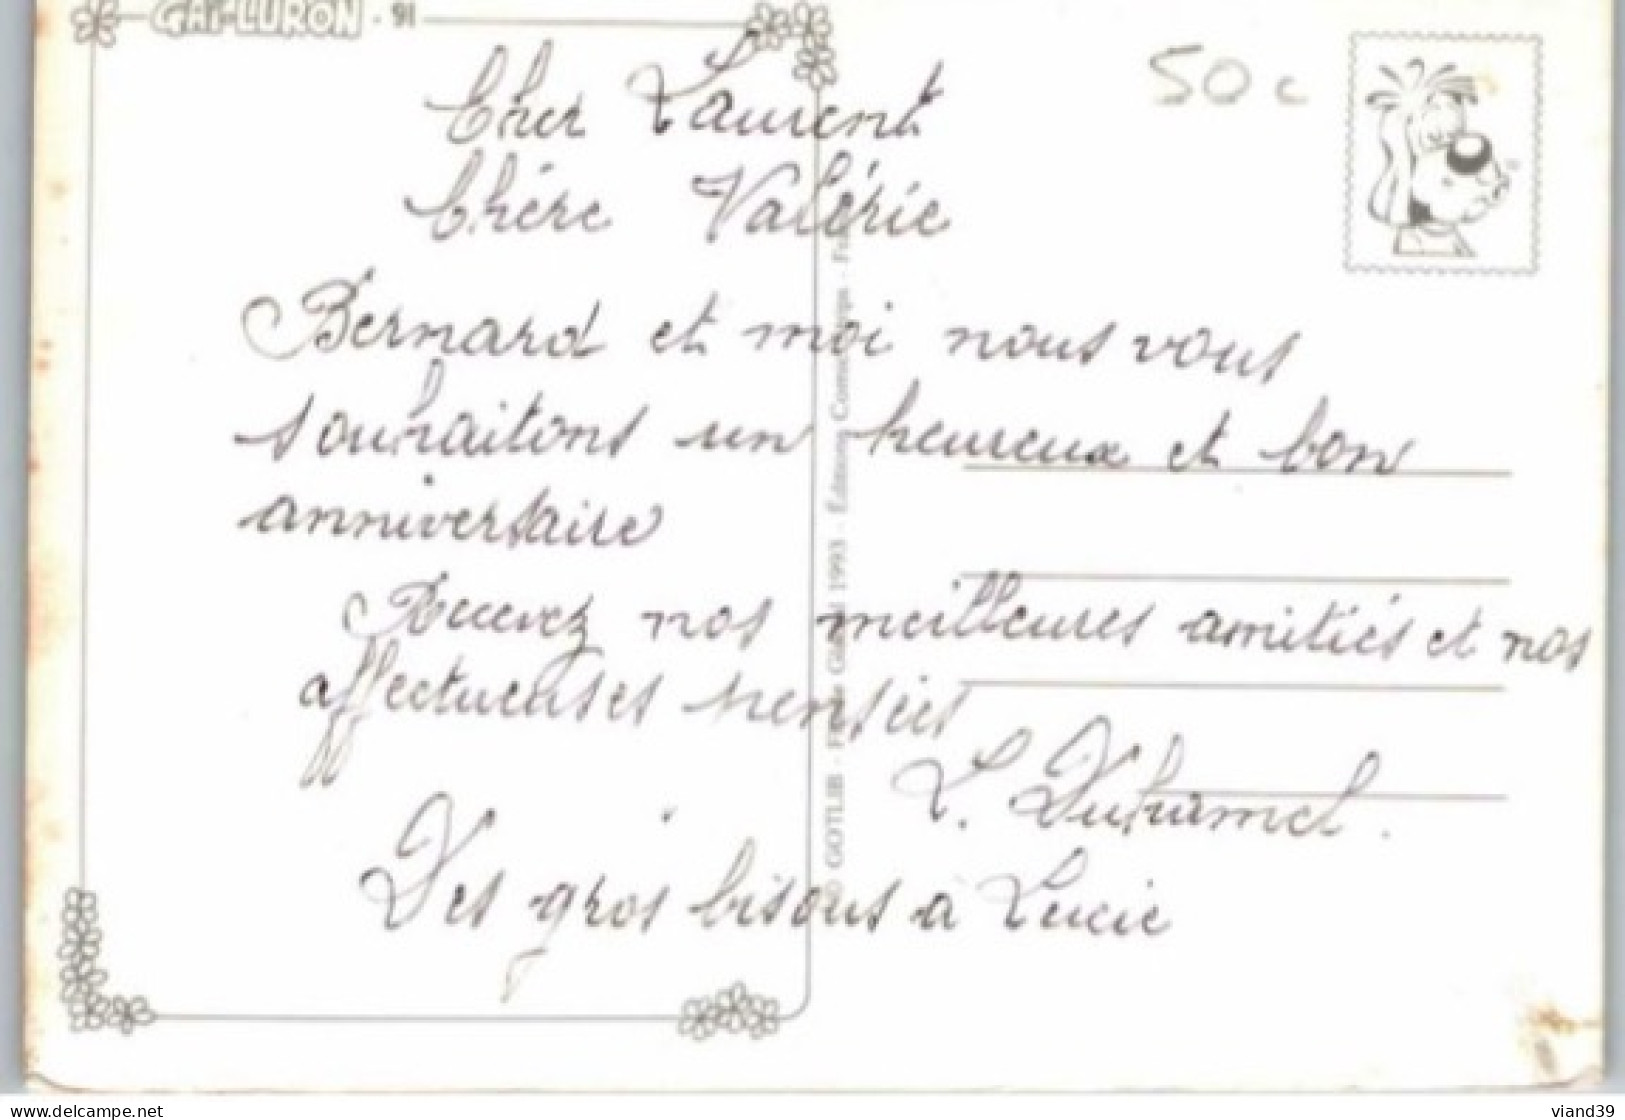 GAI-LURON - 91
50c
Cher Laurent
Chère Valérie
Bernard et moi nous vous
souhaitons un heureux et bon
anniversaire
Recevez nos meilleures amitiés et nos
affectueuses pensées
L. Duhamel.
Des gros bisous à Lucie
© GOTLIB - 1993 - Édition
viand39